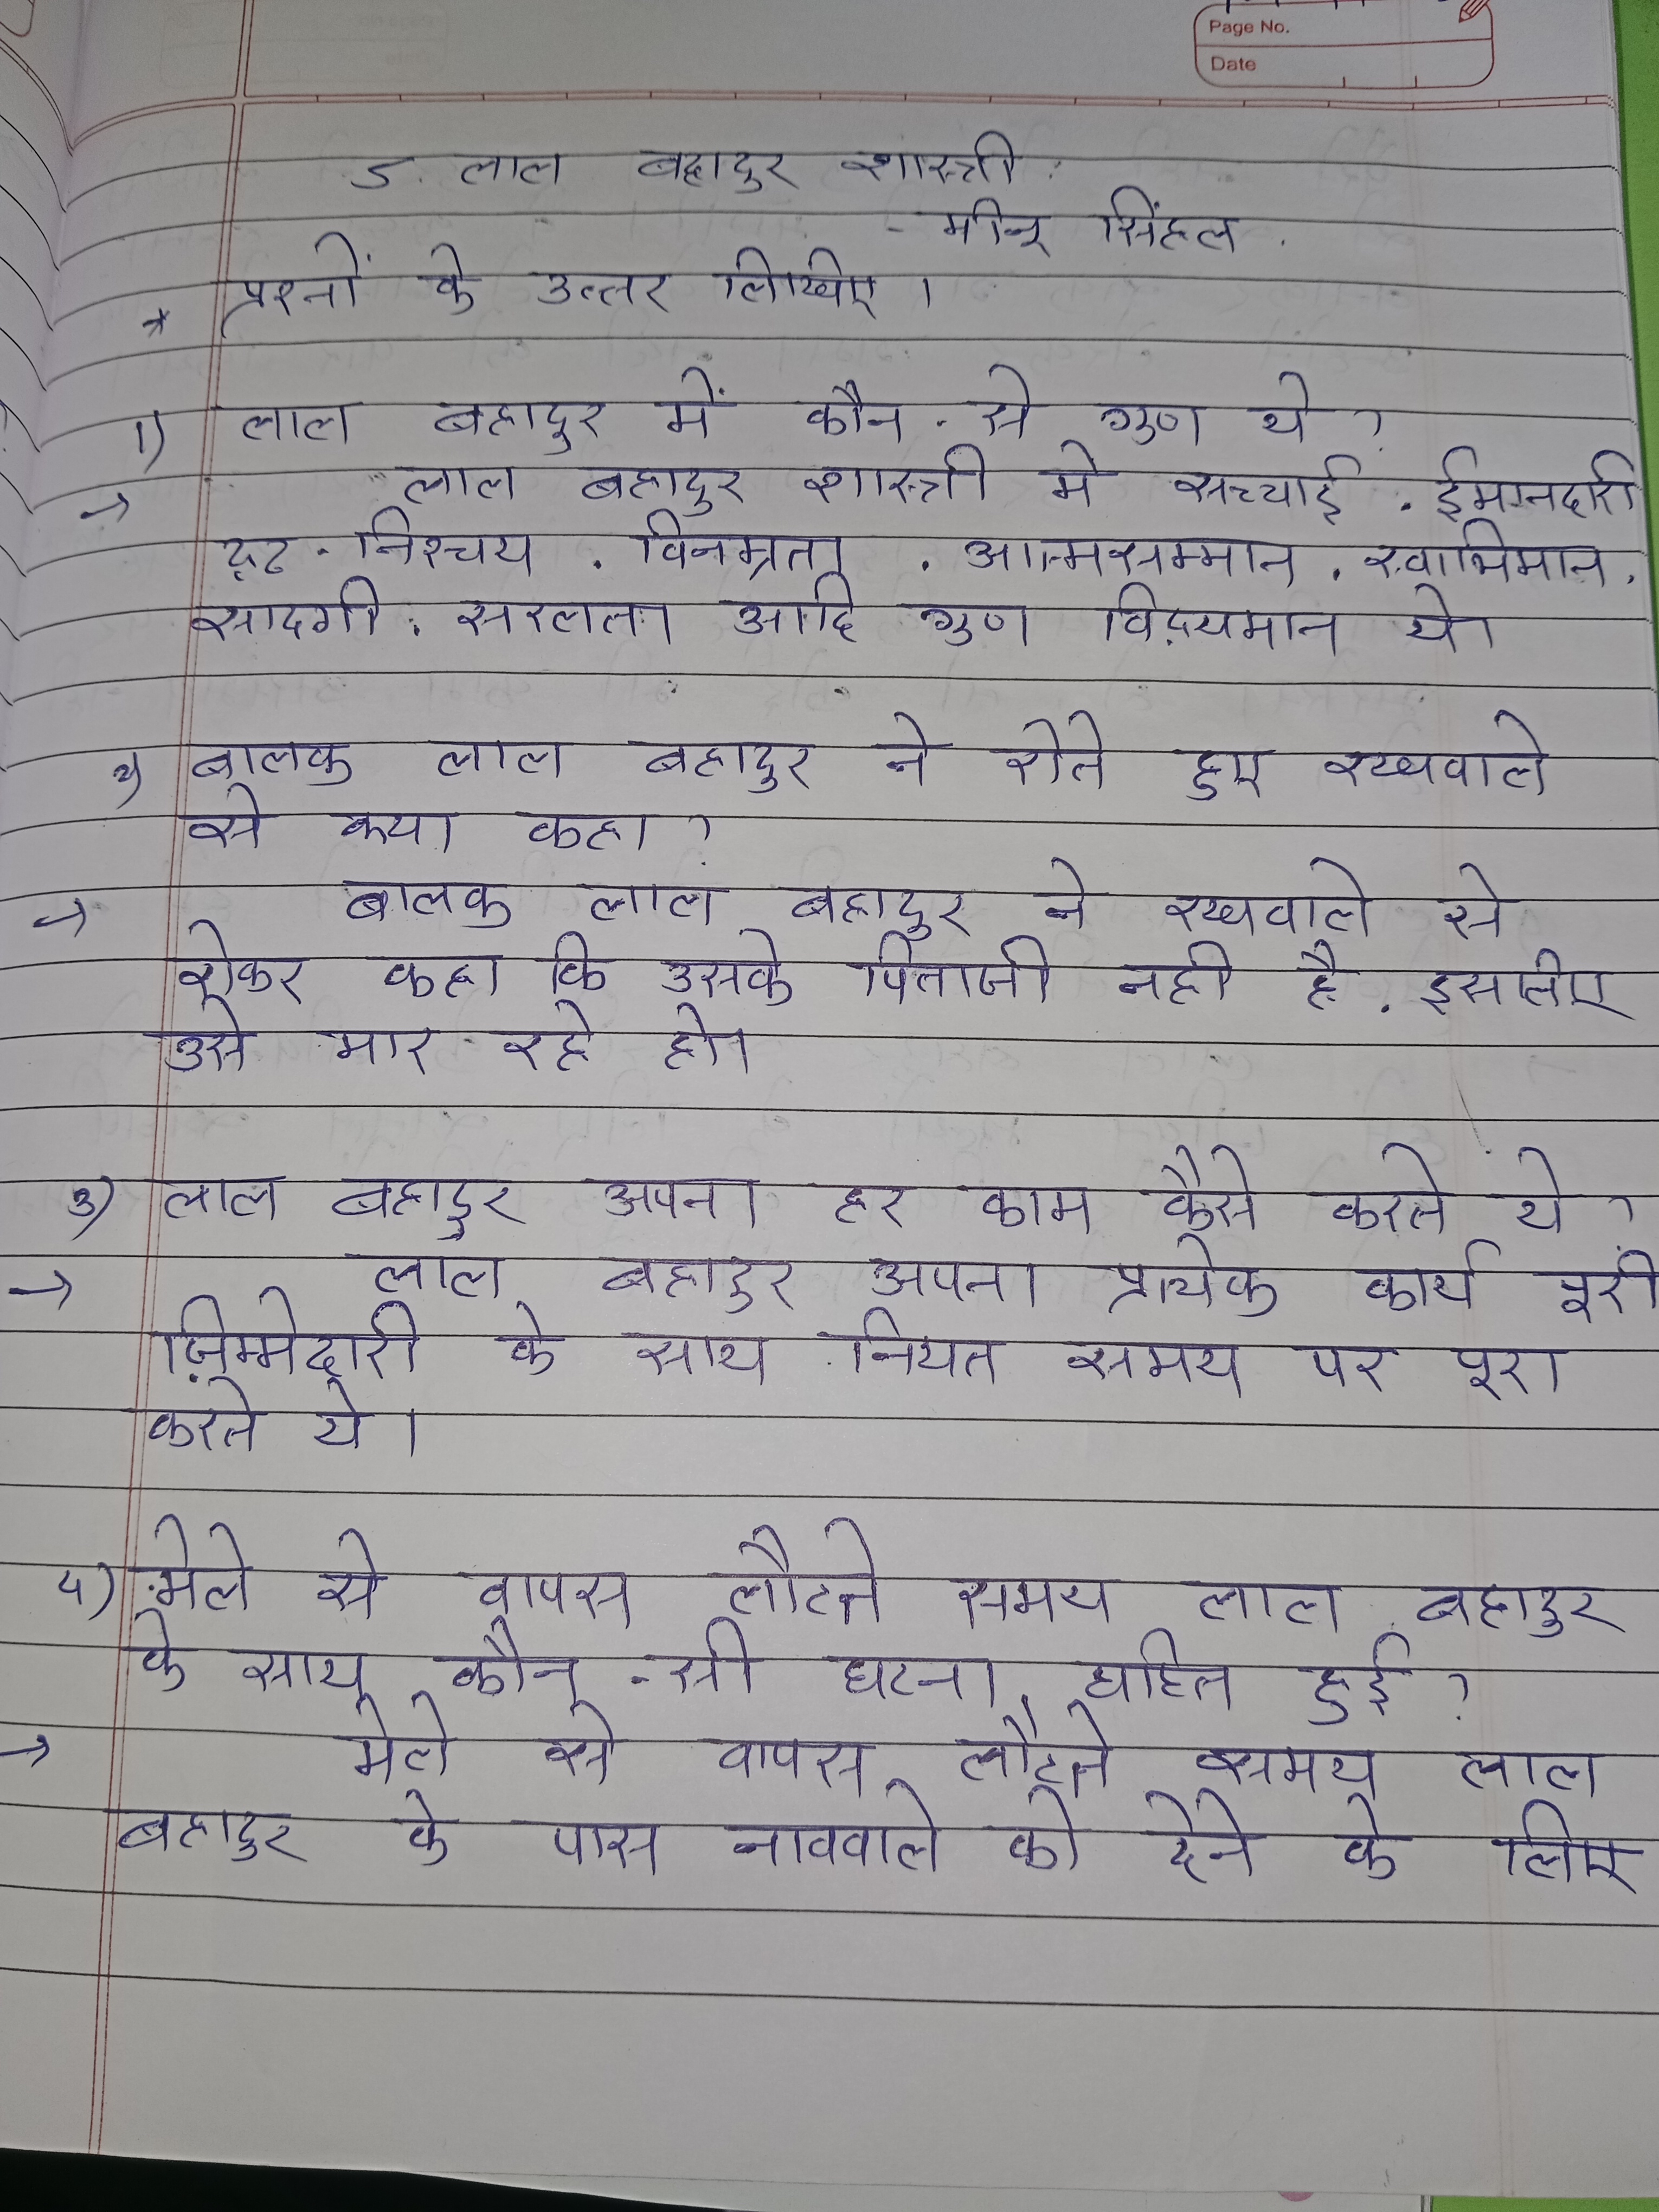 Page No.
Date
5. लाल बहादुर शास्त्री.
- मीनू सिंहल.
* प्रश्नों के उत्तर लिखिए।
1) लाल बहादुर में कौन-से गुण थे?
→ लाल बहादुर शास्त्री मे सच्चाई, ईमानदारी
दृढ-निश्चय, विनम्रता, आत्मसम्मान, स्वाभिमान,
सादगी, सरलता आदि गुण विद्यमान थे।
2) बालक लाल बहादुर ने रोते हुए रखवाले
से क्या कहा?
→ बालक लाल बहादुर ने रखवाले से
रोकर कहा कि उसके पिताजी नही है, इसलिए
उसे मार रहे हो।
3) लाल बहादुर अपना हर काम कैसे करते थे?
→ लाल बहादुर अपना प्रत्येक कार्य पूरी
ज़िम्मेदारी के साथ नियत समय पर पूरा
करते थे।
4) मेले से वापस लौटते समय लाल बहादुर
के साथ कौन-सी घटना घटित हुई?
→ मेले से वापस लौटते समय लाल
बहादुर के पास नाववाले को देने के लिए